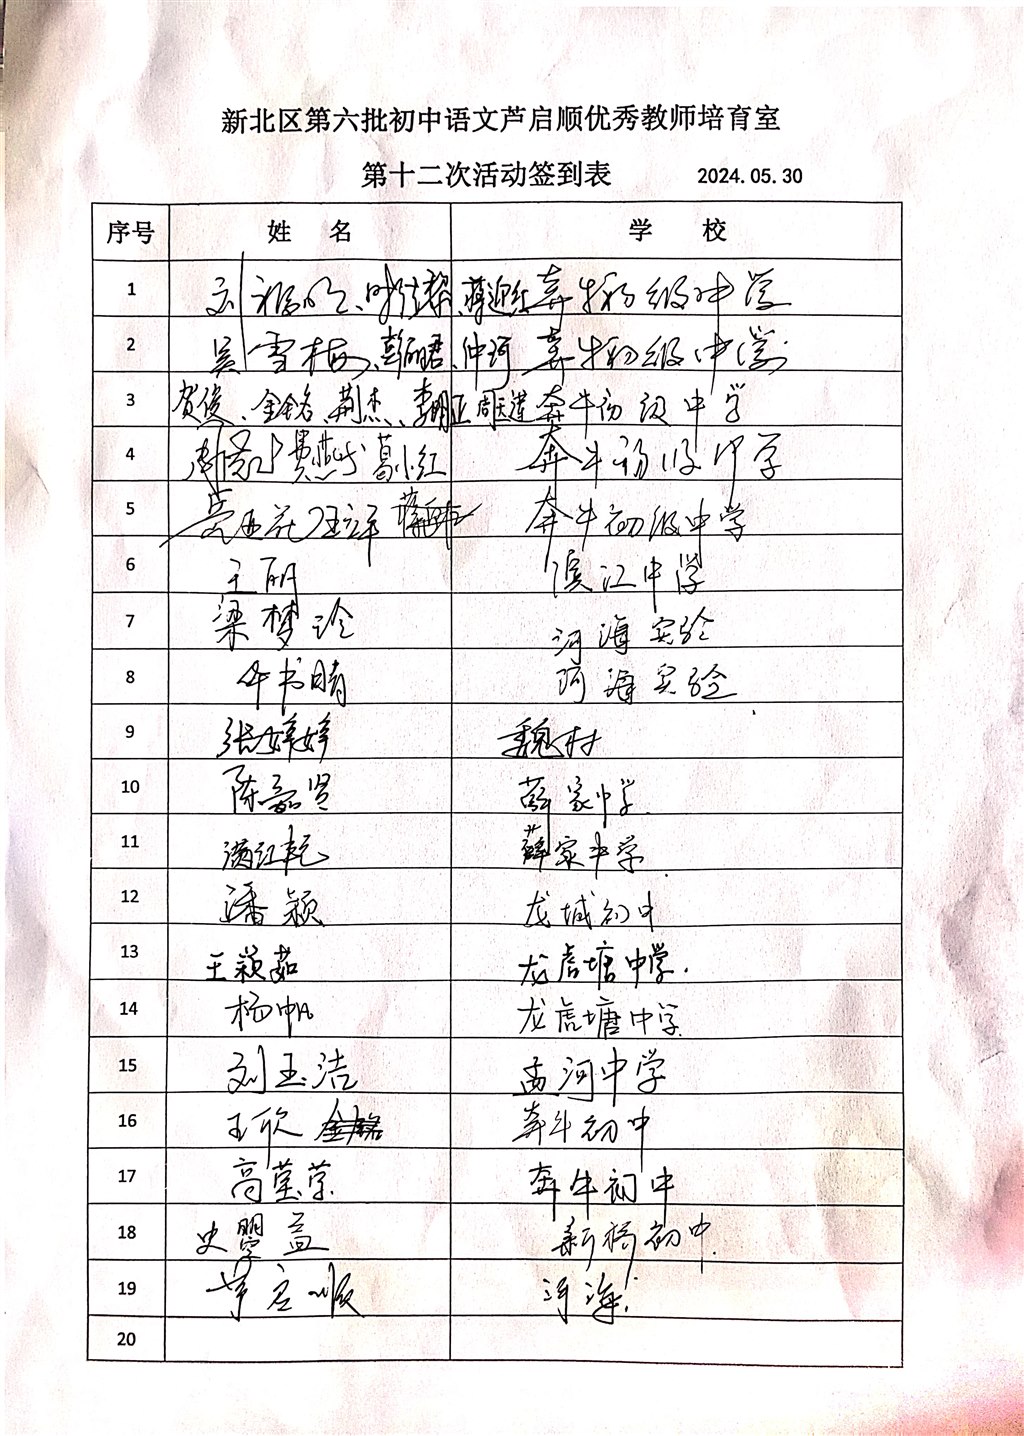 新北区第六批初中语文芦启顺优秀教师培育室
第十二次活动签到表 2024.05.30
序号 姓名 学校
1 蒋迎红 奔牛初级中学
2 吴雪梅、彭丽君、仲珂 奔牛初级中学
3 贺俊、金铭、荆杰、李明亚 周天莲 奔牛初级中学
4 葛小红 奔牛初级中学
5 奔牛初级中学
6 王丽 滨江中学
7 梁梦玲 河海实验
8 牛书晴 河海实验
9 张婷婷 魏村
10 陈嘉贤 薛家中学
11 薛家中学
12 潘颖 龙城初中
13 王颖茹 龙虎塘中学.
14 杨帆 龙虎塘中学
15 刘玉洁 孟河中学
16 王欣 奔牛初中
17 高莹莹 奔牛初中
18 史曌益 新桥初中
19 芦启顺 河海
20